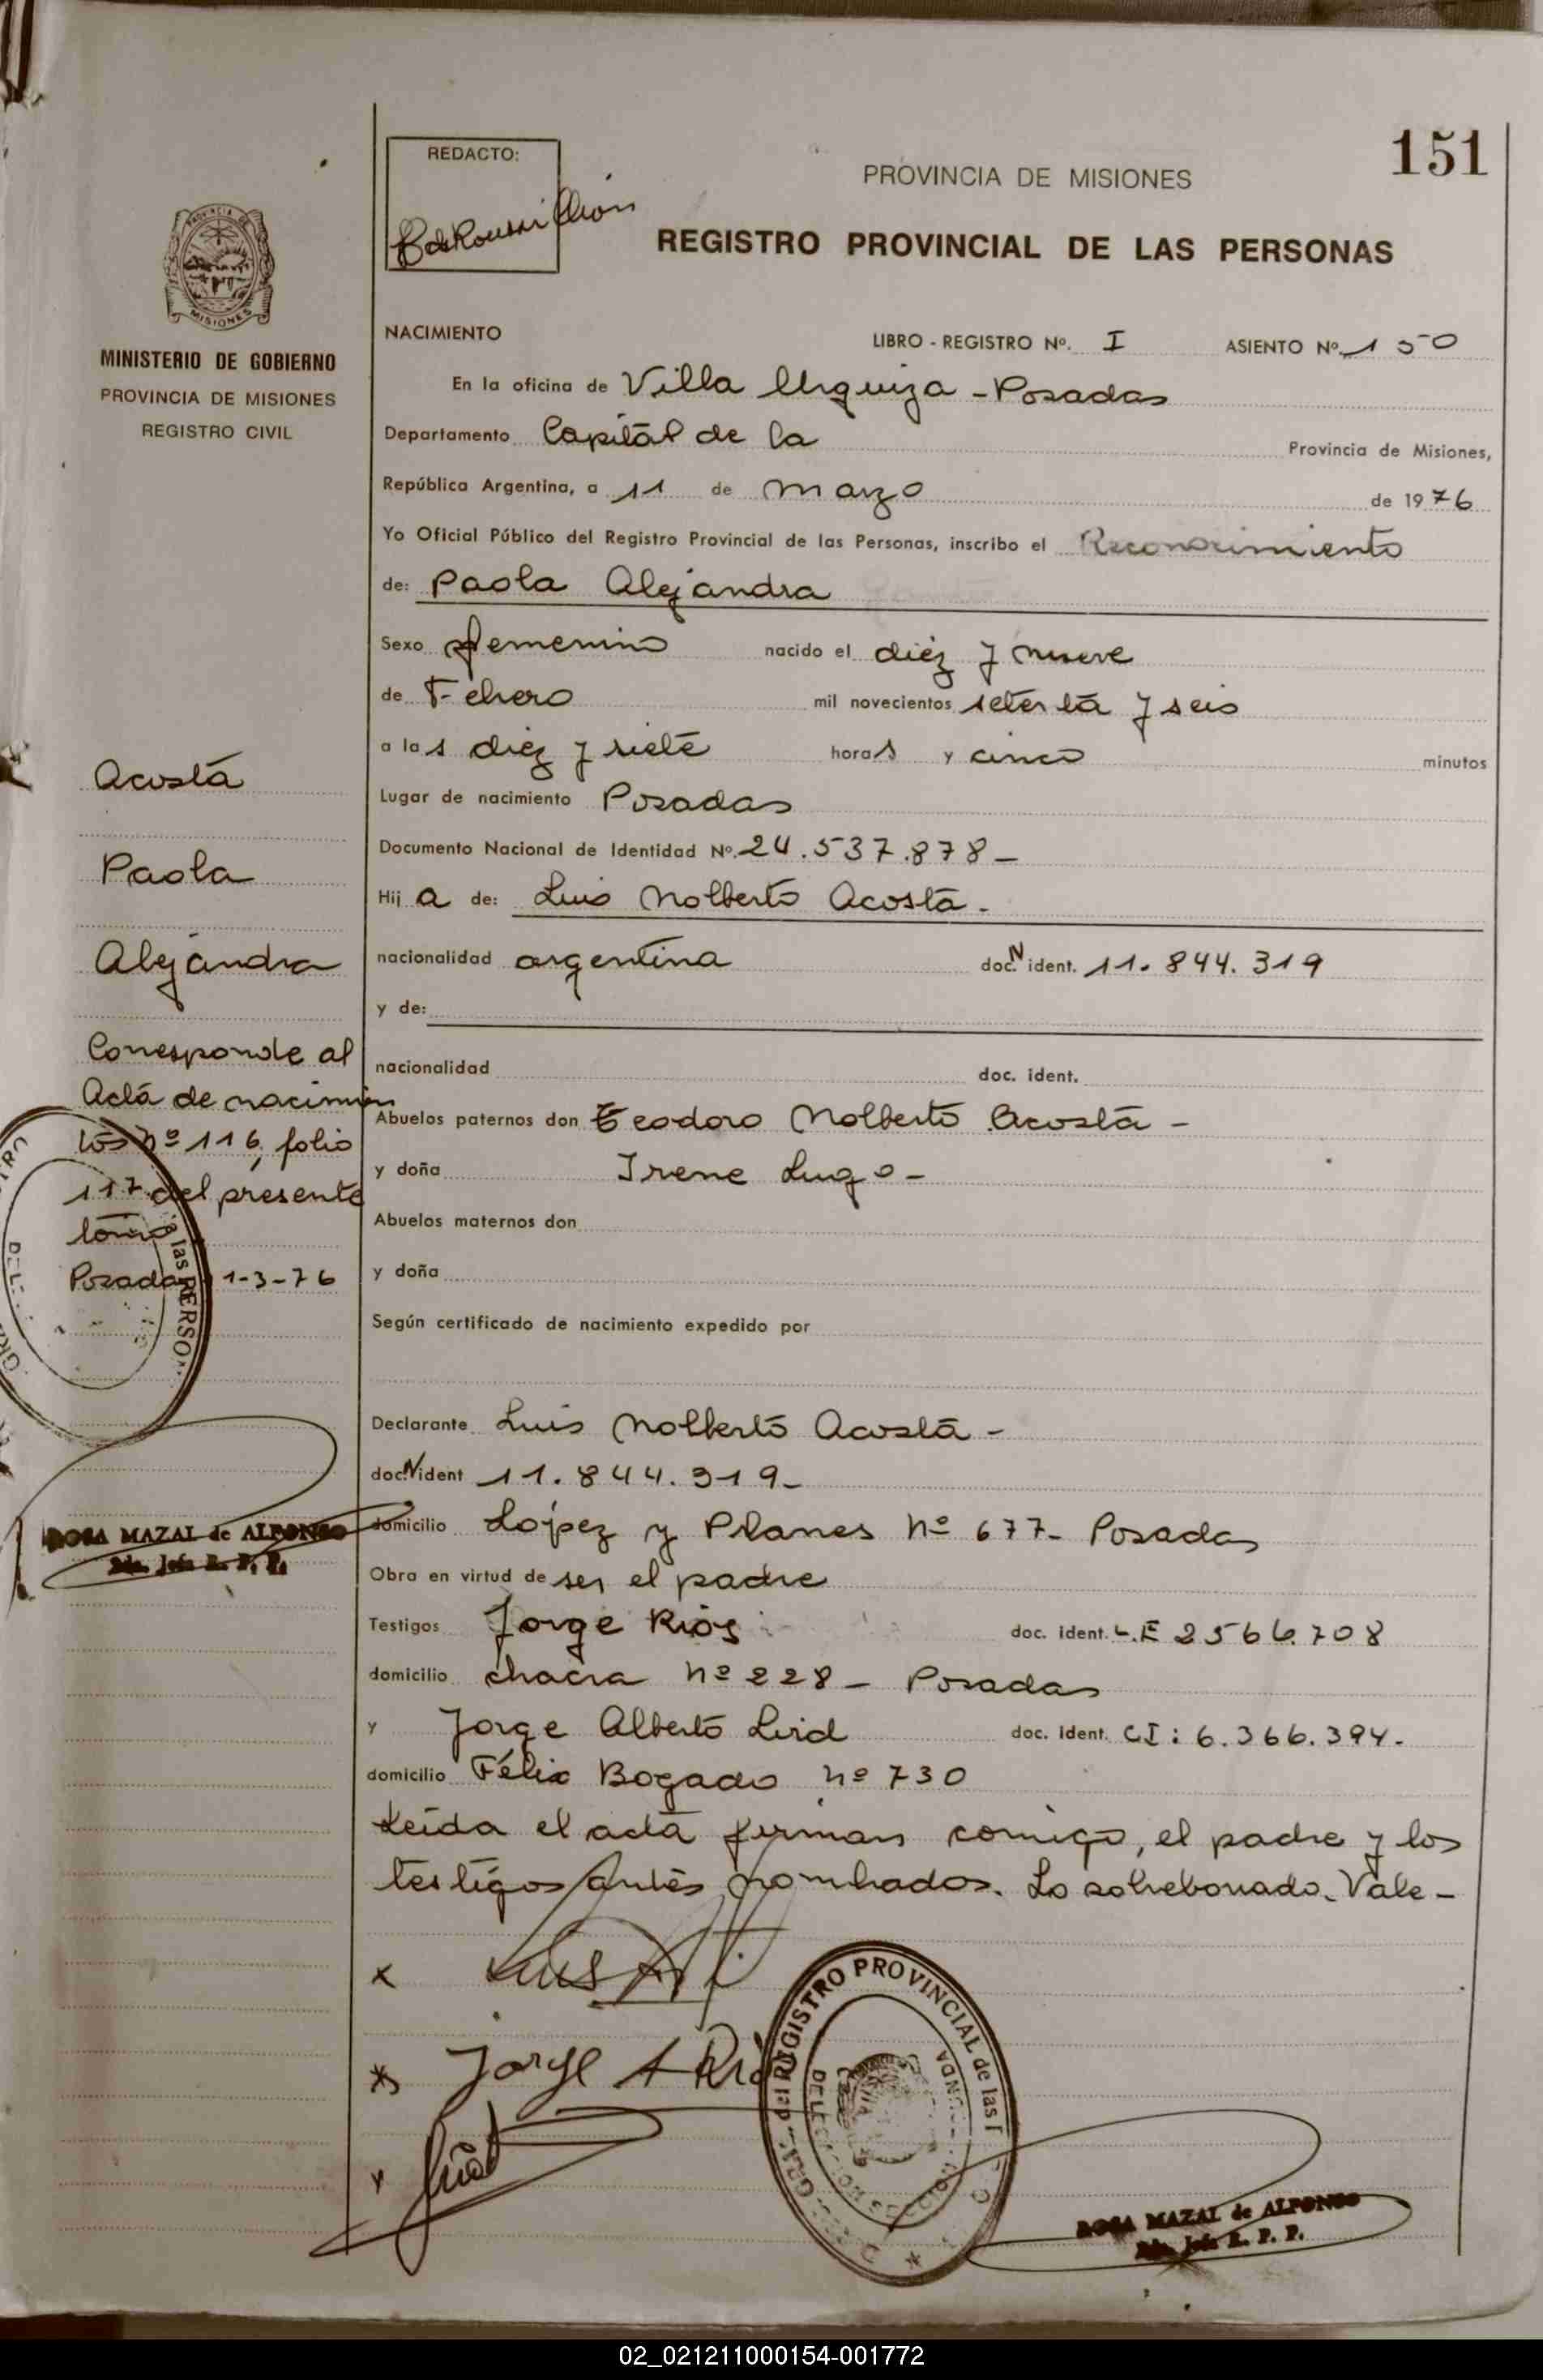 151
REDACTO:
PROVINCIA DE MISIONES
REGISTRO PROVINCIAL DE LAS PERSONAS
PROVINCIA DE
MISIONES
MINISTERIO DE GOBIERNO
PROVINCIA DE MISIONES
REGISTRO CIVIL
NACIMIENTO LIBRO - REGISTRO Nº. I ASIENTO Nº. 150
En la oficina de Villa Urquiza - Posadas
Departamento Capital de la Provincia de Misiones,
República Argentina, a 11 de marzo de 1976
Yo Oficial Público del Registro Provincial de las Personas, inscribo el Reconocimiento
de: Paola Alejandra
Sexo femenino nacido el diéz y nueve
de Febrero mil novecientos setenta y seis
a las diez y siete horas y cinco minutos
Lugar de nacimiento Posadas
Documento Nacional de Identidad Nº. 24.537.878 -
Hija de: Luis Nolberto Acosta -
nacionalidad argentina doc. N ident. 11.844.319
y de:
nacionalidad doc. ident.
Abuelos paternos don Teodoro Nolberto Acosta -
y doña Irene Lugo -
Abuelos maternos don
y doña
Según certificado de nacimiento expedido por
Declarante Luis Nolberto Acosta -
doc. N ident 11.844.319 -
domicilio López y Planes Nº 677 - Posadas
Obra en virtud de ser el padre
Testigos Jorge Ríos doc. ident. L.E 2566.708
domicilio chacra nº 228 - Posadas
y Jorge Alberto doc. ident. CI: 6.366.394.
domicilio Félix Bogado nº 730
Leída el acta firman comigo, el padre y los
testigos antes nombrados. Lo sobreborrado. Vale -
Acosta
Paola
Alejandra
Corresponde al
Acta de nacimien
tos nº 116, folio
117 del presente
tomo
Posadas 11-3-76
de las PERSON
ROSA MAZAL de ALFONSO
Jefa R. P. P.
x Luis
x Jorge A Rió
x
del REGISTRO PROVINCIAL de las
ROSA MAZAL de ALFONSO
Jefa R. P. P.
02_021211000154-001772